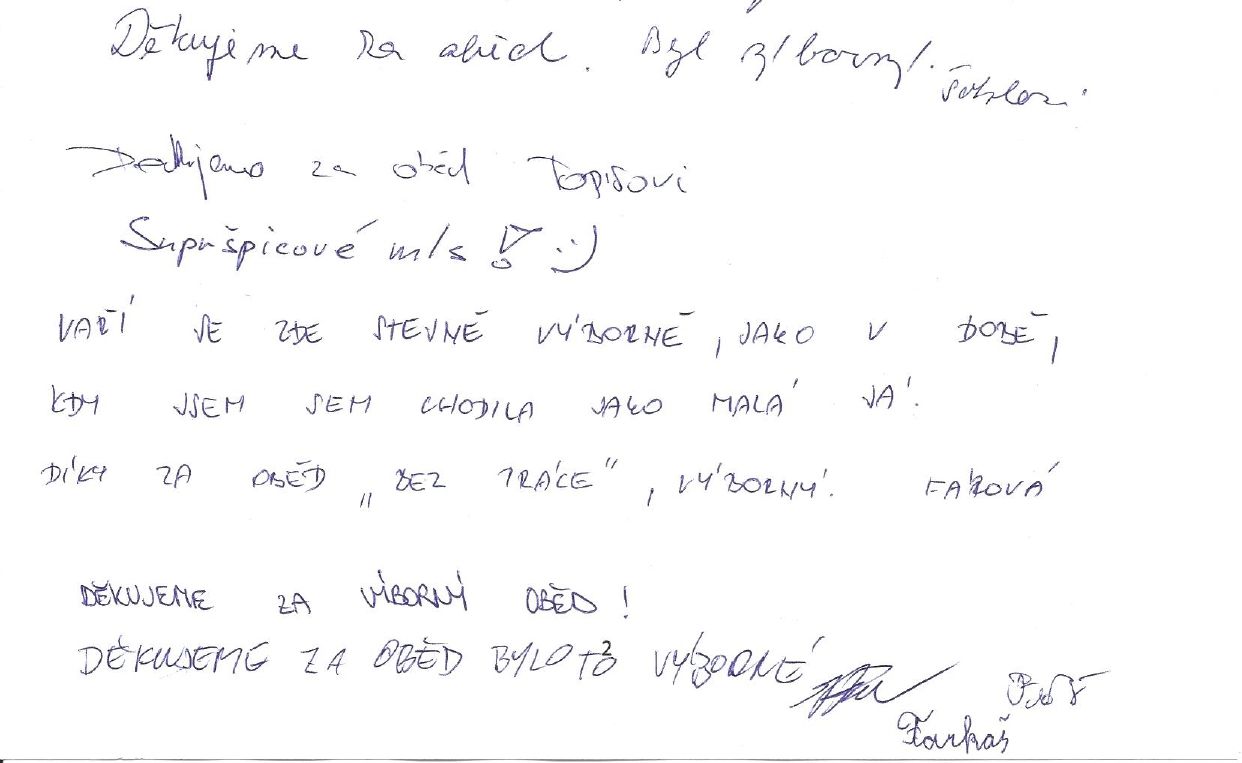 Děkujeme za oběd. Byl výborný.
Děkujeme za oběd Topišovi
Supršpicové mls! :-)
VAŘÍ SE ZDE STEJNĚ VÝBORNĚ, JAKO V DOBĚ,
KDY JSEM SEM CHODILA JAKO MALÁ JÁ.
DÍKY ZA OBĚD „BEZ PRÁCE", VÝBORNÝ. FAROVÁ
DĚKUJEME ZA VÍBORNÝ OBĚD!
DĚKUJEME ZA OBĚD BYLO TO VÝBORNÉ
Farkaš